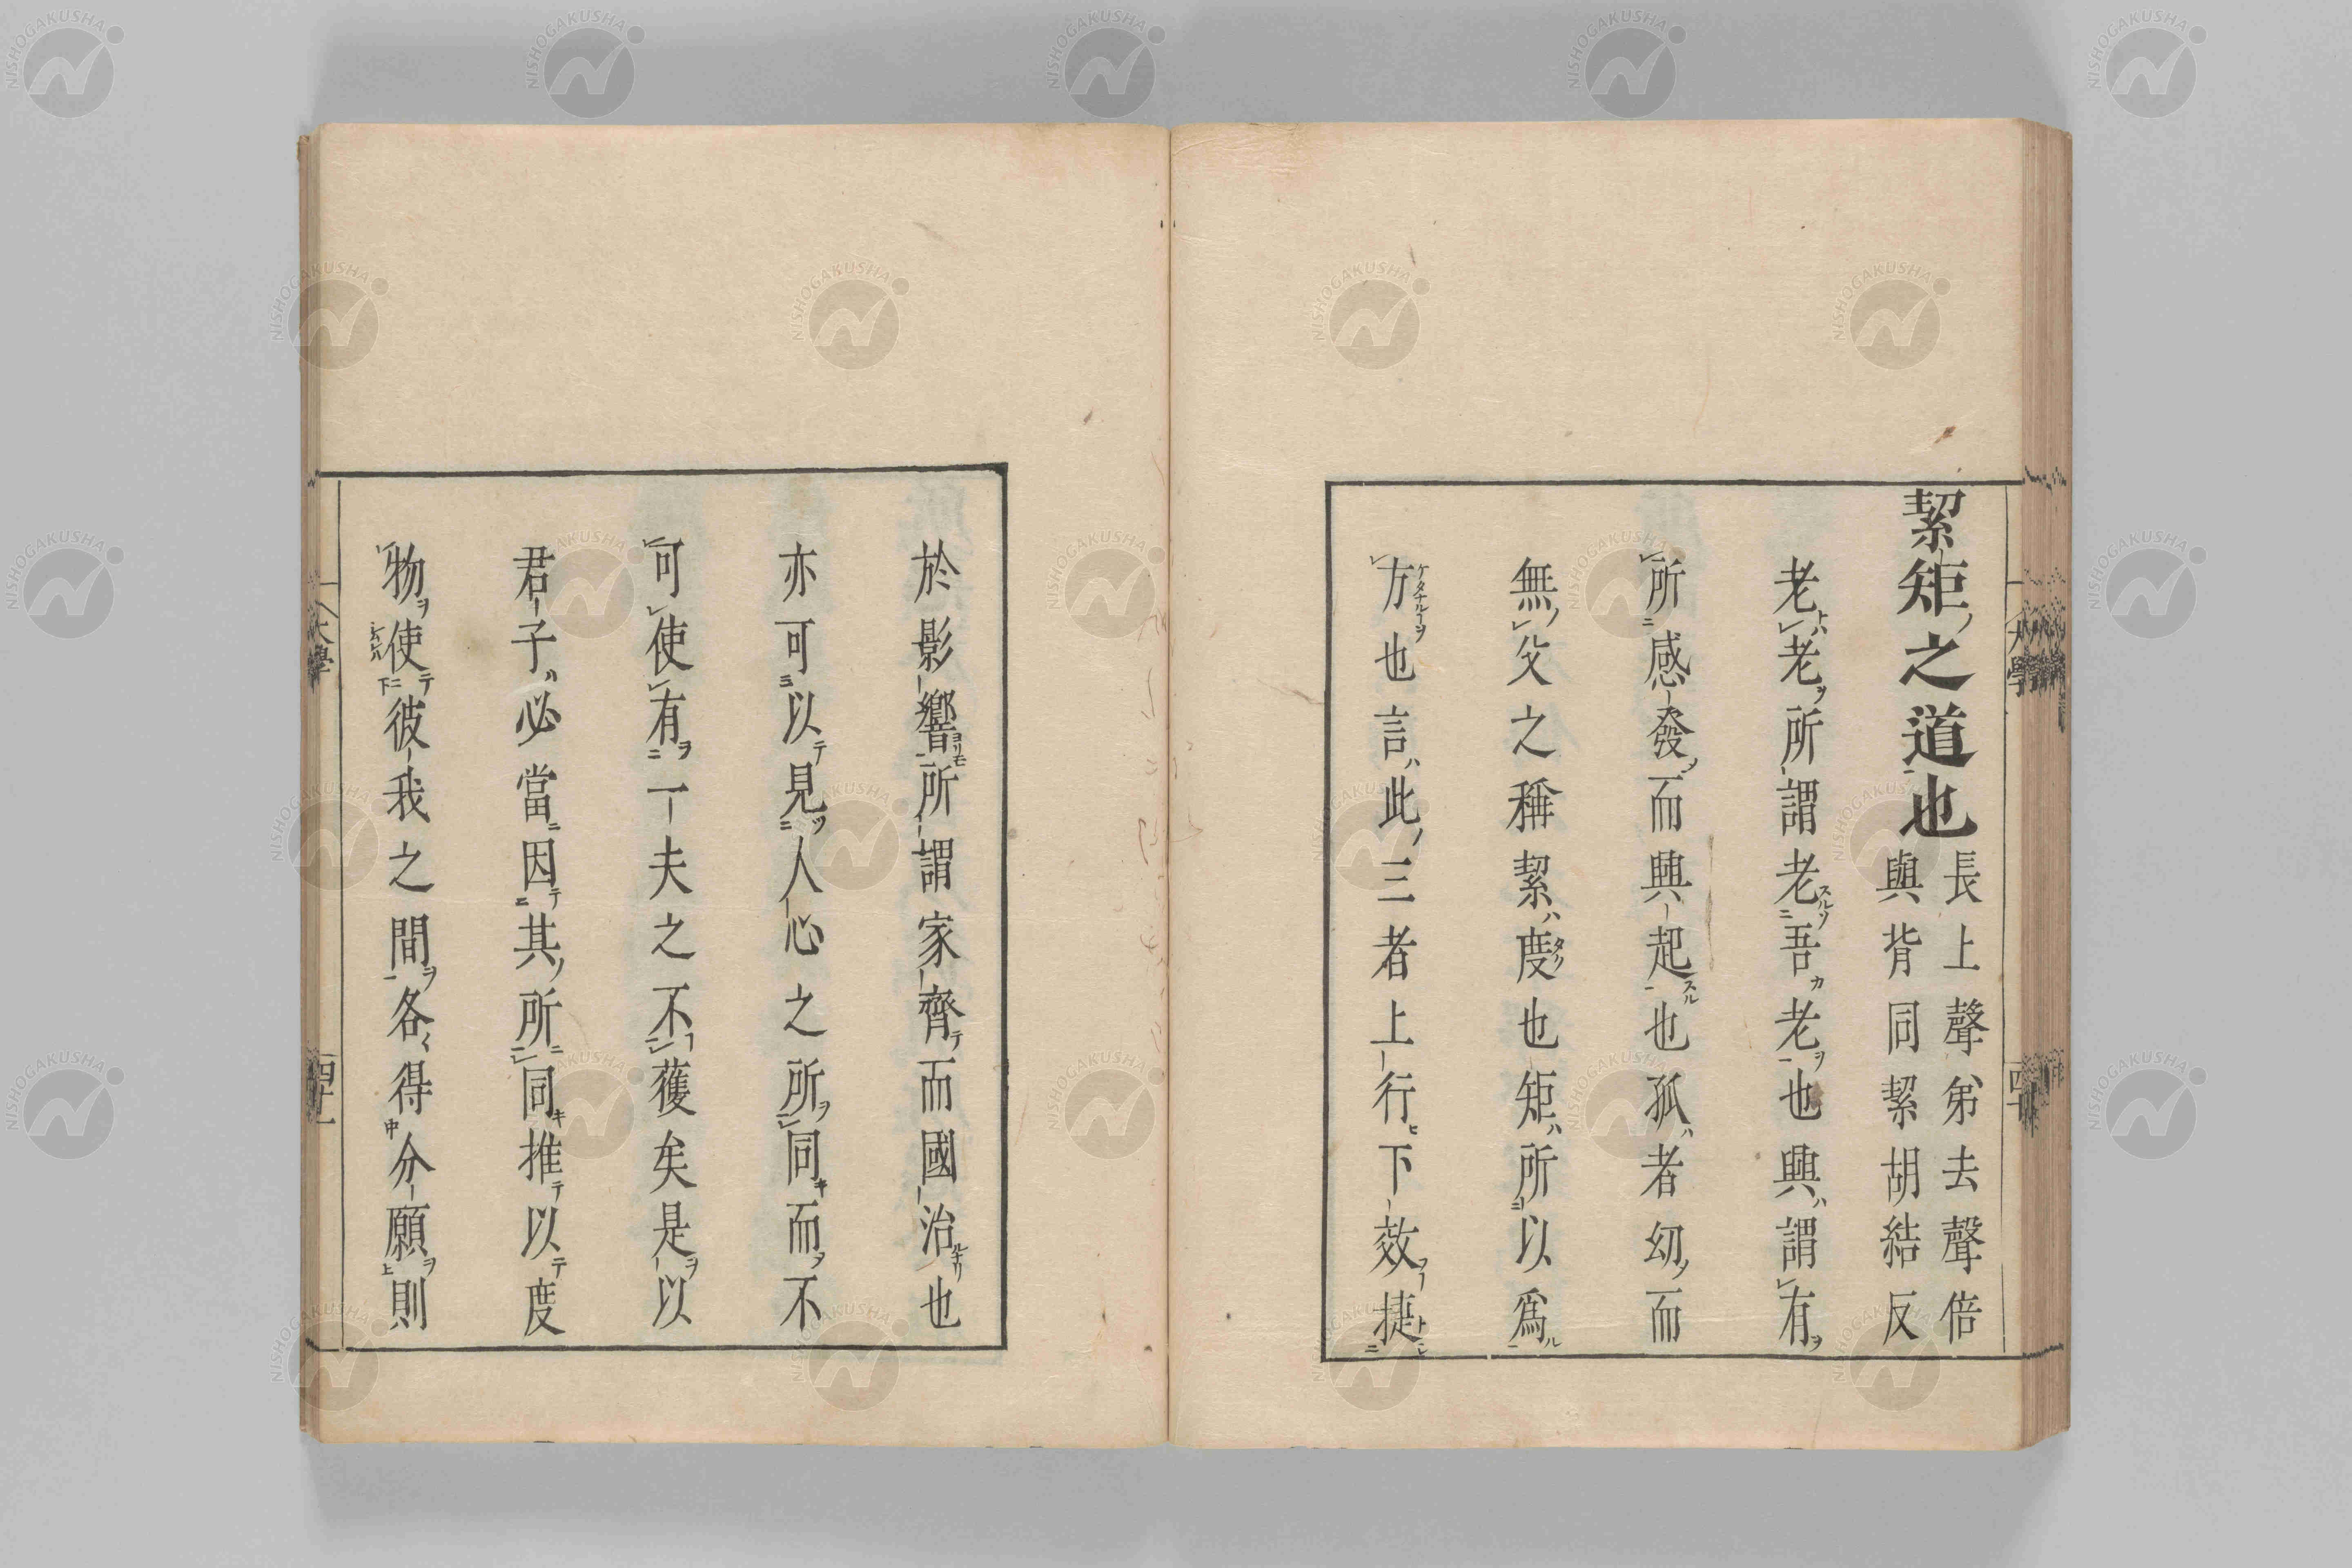 絜矩之道也
長上聲弟去聲倍
與背同絜胡結反
老老所謂老吾老也興謂有
所感發而興起也孤者幼而
無父之稱絜度也矩所以爲
方也言此三者上行下效捷
於影響所謂家齊而國治也
亦可以見人心之所同而不
可使有一夫之不獲矣是以
君子必當因其所同推以度
物使彼我之間各得分願則
大學
NISHOGAKUSHA